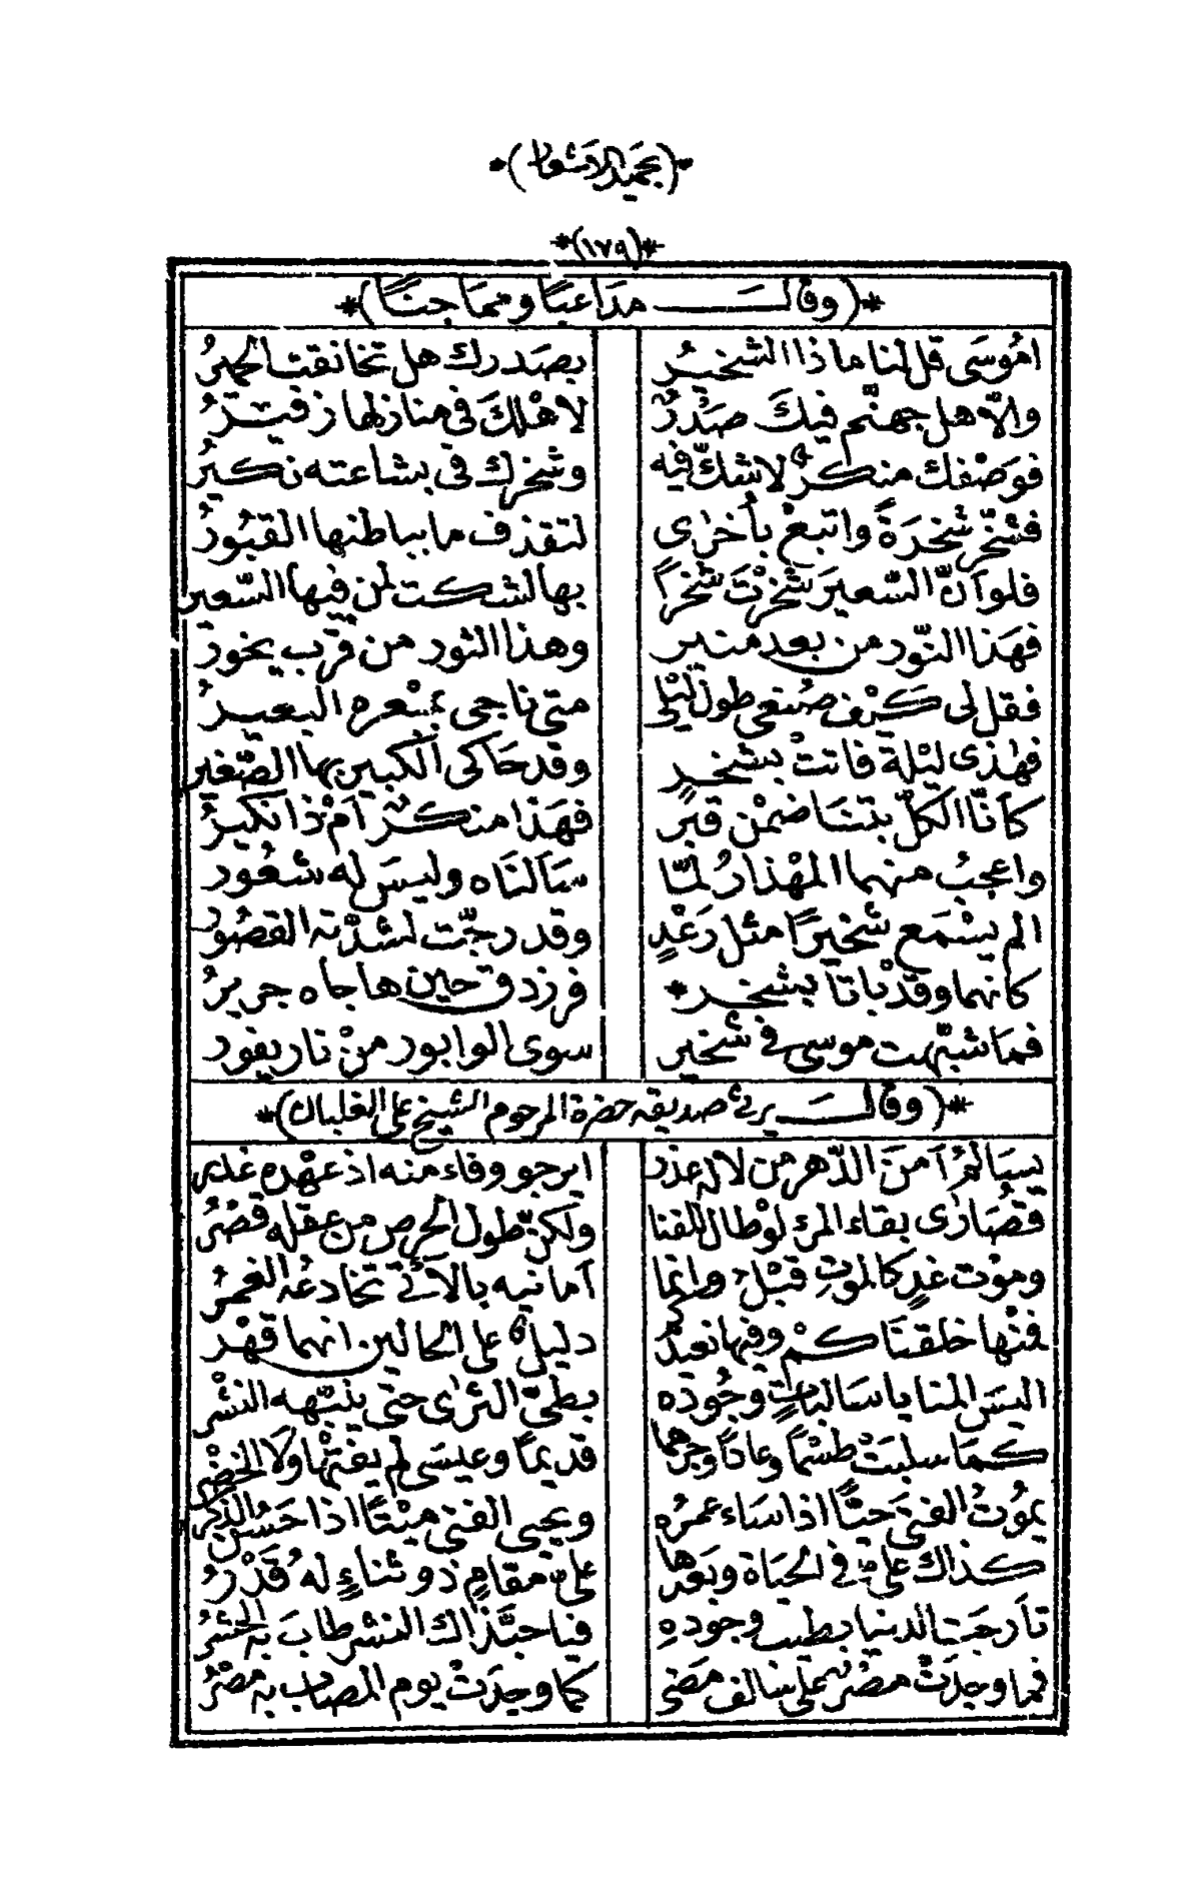 *(بحميد الاشعار)*
*(١٧٩)*
*(وقالـــ مداعبًا ومماجنًا)*
امُوسَى قل لنا ماذا الشخيرُ بصَدرك هل تخانقت الحميرُ
والاّ هل جهنّم فيكَ صَدْرٌ لاهْلكَ فى منازلها زفيرُ
فوَصْفك منكرٌ لاشكّ فيه وشخرك فى بشاعته نكيرُ
فشخّر شخرَةً واتبعْ بأخرٰى لتقذف ما بباطنها القبُورُ
فلو أنّ السّعيرَ شخرْتَ شخرًا بها لشكت لمن فيها السّعير
فهَذا النّور من بعد منير وهذا الثور من قرب يخور
فقل لى كيْف صُنعى طول ليْلى متى ناجى بمنْعره البعيرُ
فهٰذى ليْلة فاتتْ بشخرٍ وقد حَاكى الكبير بها الصّغير
كأنّا الكلّ بتنا ضمْن قبر فهَذا منكرٌ أمْ ذا نكيرُ
واعجبُ منهما المهْذارُ لمّا سَألنَاه وليسَ له شعُور
الم يسْمَع شخيرًا مثل رَعْدٍ وقد رجّت لشدّته القصُورُ
كأنهما وقدْ باتا بشخر * فرزدق حين هاجاه جريرُ
فما شبّهت موسى فى شخير سوى الوابور منْ نار يفور
*(وقالـــ يرثى صديقه حضرة المرحوم الشيخ على الغلبان)*
يسَالمُ أمنَ الدّهر من لا له عذر ايرجو وفاء منه اذ عهْده غدر
قصُارٰى بقاء المرء لوْ طال للفنا ولكنّ طول الحرص من عقله قصْرُ
وموْت غدٍ كالموتِ قبْلُ وانما أمانيه بالآتى تخادعُه الغمرُ
فمنْها خلقنَاكمْ وفيها نعيدكم دليلٌ على الحالين انهما قهْر
اليسَ المنايا سَالباتٍ وجُودَه بطىّ الثرٰى حتى ينبّهه النشْر
كمَا سلبَتْ طسْمًا وعادًا وجرهما قديمًا وعيسَى لم يفتْها ولا الخضْر
يموُتُ الفتى حيًّا اذا سَاء عمرُه ويحيى الفتى ميْتًا اذا حَسُن الذكر
كذاك علىّ فى الحيَاة وبَعْدها علىّ مقامٍ ذو ثناءٍ لهُ قَدْرُ
تأرجَت الدنيا بطيب وجودهِ فيا حبّذا ذاك النشر طابَ به الحشرُ
فما وجدَتْ مصْر على سالف مضى كما وجدَتْ يوم المصاب به مصْرُ